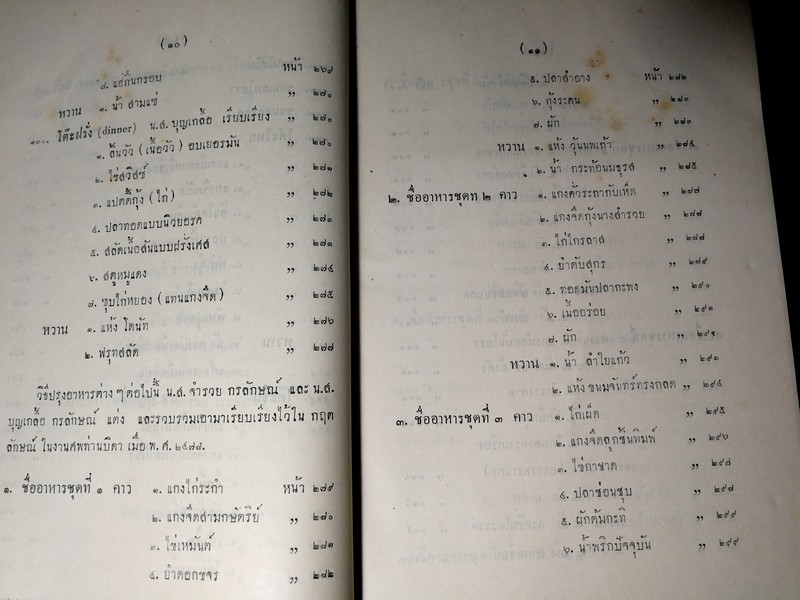 (๑๐)
๘. แฮ่กึ๊นกรอบ หน้า ๒๖๙
หวาน ๑. น้ำ สามแซ่ ,, ๒๗๐
โต๊ะฝรั่ง (dinner) น.ส. บุญเกลื้อ เรียบเรียง ,, ๒๗๑
๑. ลิ้นวัว (เนื้อวัว) อบเยอรมัน ,, ๒๗๐
๒. ไข่สวิสซ์ ,, ๒๗๑
๓. แปตตี้กุ้ง (ไก่) ,, ๒๗๒
๔. ปลาทอดแบบนิวยอรค ,, ๒๗๓
๕. สลัดเนื้อสันแบบฝรั่งเศส ,, ๒๗๓
๖. สตูหมูแดง ,, ๒๗๔
๗. ซุบไก่หยอง (แทนแกงจืด) ,, ๒๗๕
หวาน ๑. แห้ง โดนัท ,, ๒๗๖
๒. ฟรุทสลัด ,, ๒๗๗
วิธีปรุงอาหารต่าง ๆ ต่อไปนี้ น.ส. จำรวย กรลักษณ์ และ น.ส.
บุญเกลื้อ กรลักษณ์ แต่ง และรวบรวมเอามาเรียบเรียงไว้ใน กฤต
ลักษณ์ ในงานศพท่านบิดา เมื่อ พ.ศ. ๒๔๗๘.
๑. ชื่ออาหารชุดที่ ๑ คาว ๑. แกงไก่ระกำ หน้า ๒๗๙
๒. แกงจืดสามกษัตริย์ ,, ๒๘๐
๓. ไข่เหมันต์ ,, ๒๘๑
๔. ยำดอกขจร ,, ๒๘๒
(๑๑)
๕. ปลาสำอาง หน้า ๒๘๒
๖. กุ้งระคน ,, ๒๘๓
๗. ผัก ,, ๒๘๓
หวาน ๑. แห้ง วุ้นนพเก้า ,, ๒๘๔
๒. น้ำ กระท้อนมธุรส ,, ๒๘๕
๒. ชื่ออาหารชุดที่ ๒ คาว ๑. แกงคั่วระกากับเห็ด ,, ๒๘๗
๒. แกงจืดกุ้งนางสำรวย ,, ๒๘๗
๓. ไก่ไกรลาส ,, ๒๘๘
๔. ยำตับสุกร ,, ๒๘๙
๕. ทอดมันปลากะพง ,, ๒๙๐
๖. เนื้ออร่อย ,, ๒๙๑
๗. ผัก ,, ๒๙๑
หวาน ๑. น้ำ ลำใยแก้ว ,, ๒๙๓
๒. แห้ง ขนมจันทร์ทรงกลด ,, ๒๙๔
๓. ชื่ออาหารชุดที่ ๓ คาว ๑. ไก่เผ็ด ,, ๒๙๕
๒. แกงจืดลูกชิ้นพิมพ์ ,, ๒๙๖
๓. ไข่กาชาด ,, ๒๙๗
๔. ปลาช่อนชุบ ,, ๒๙๘
๕. ผักต้มกะทิ ,, ๒๙๙
๖. น้ำพริกปัจจุบัน ,, ๒๙๙